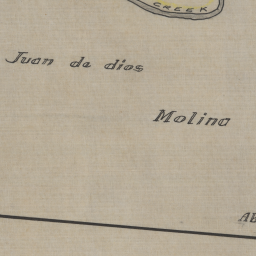 CREEK
Juan de dios
Molina